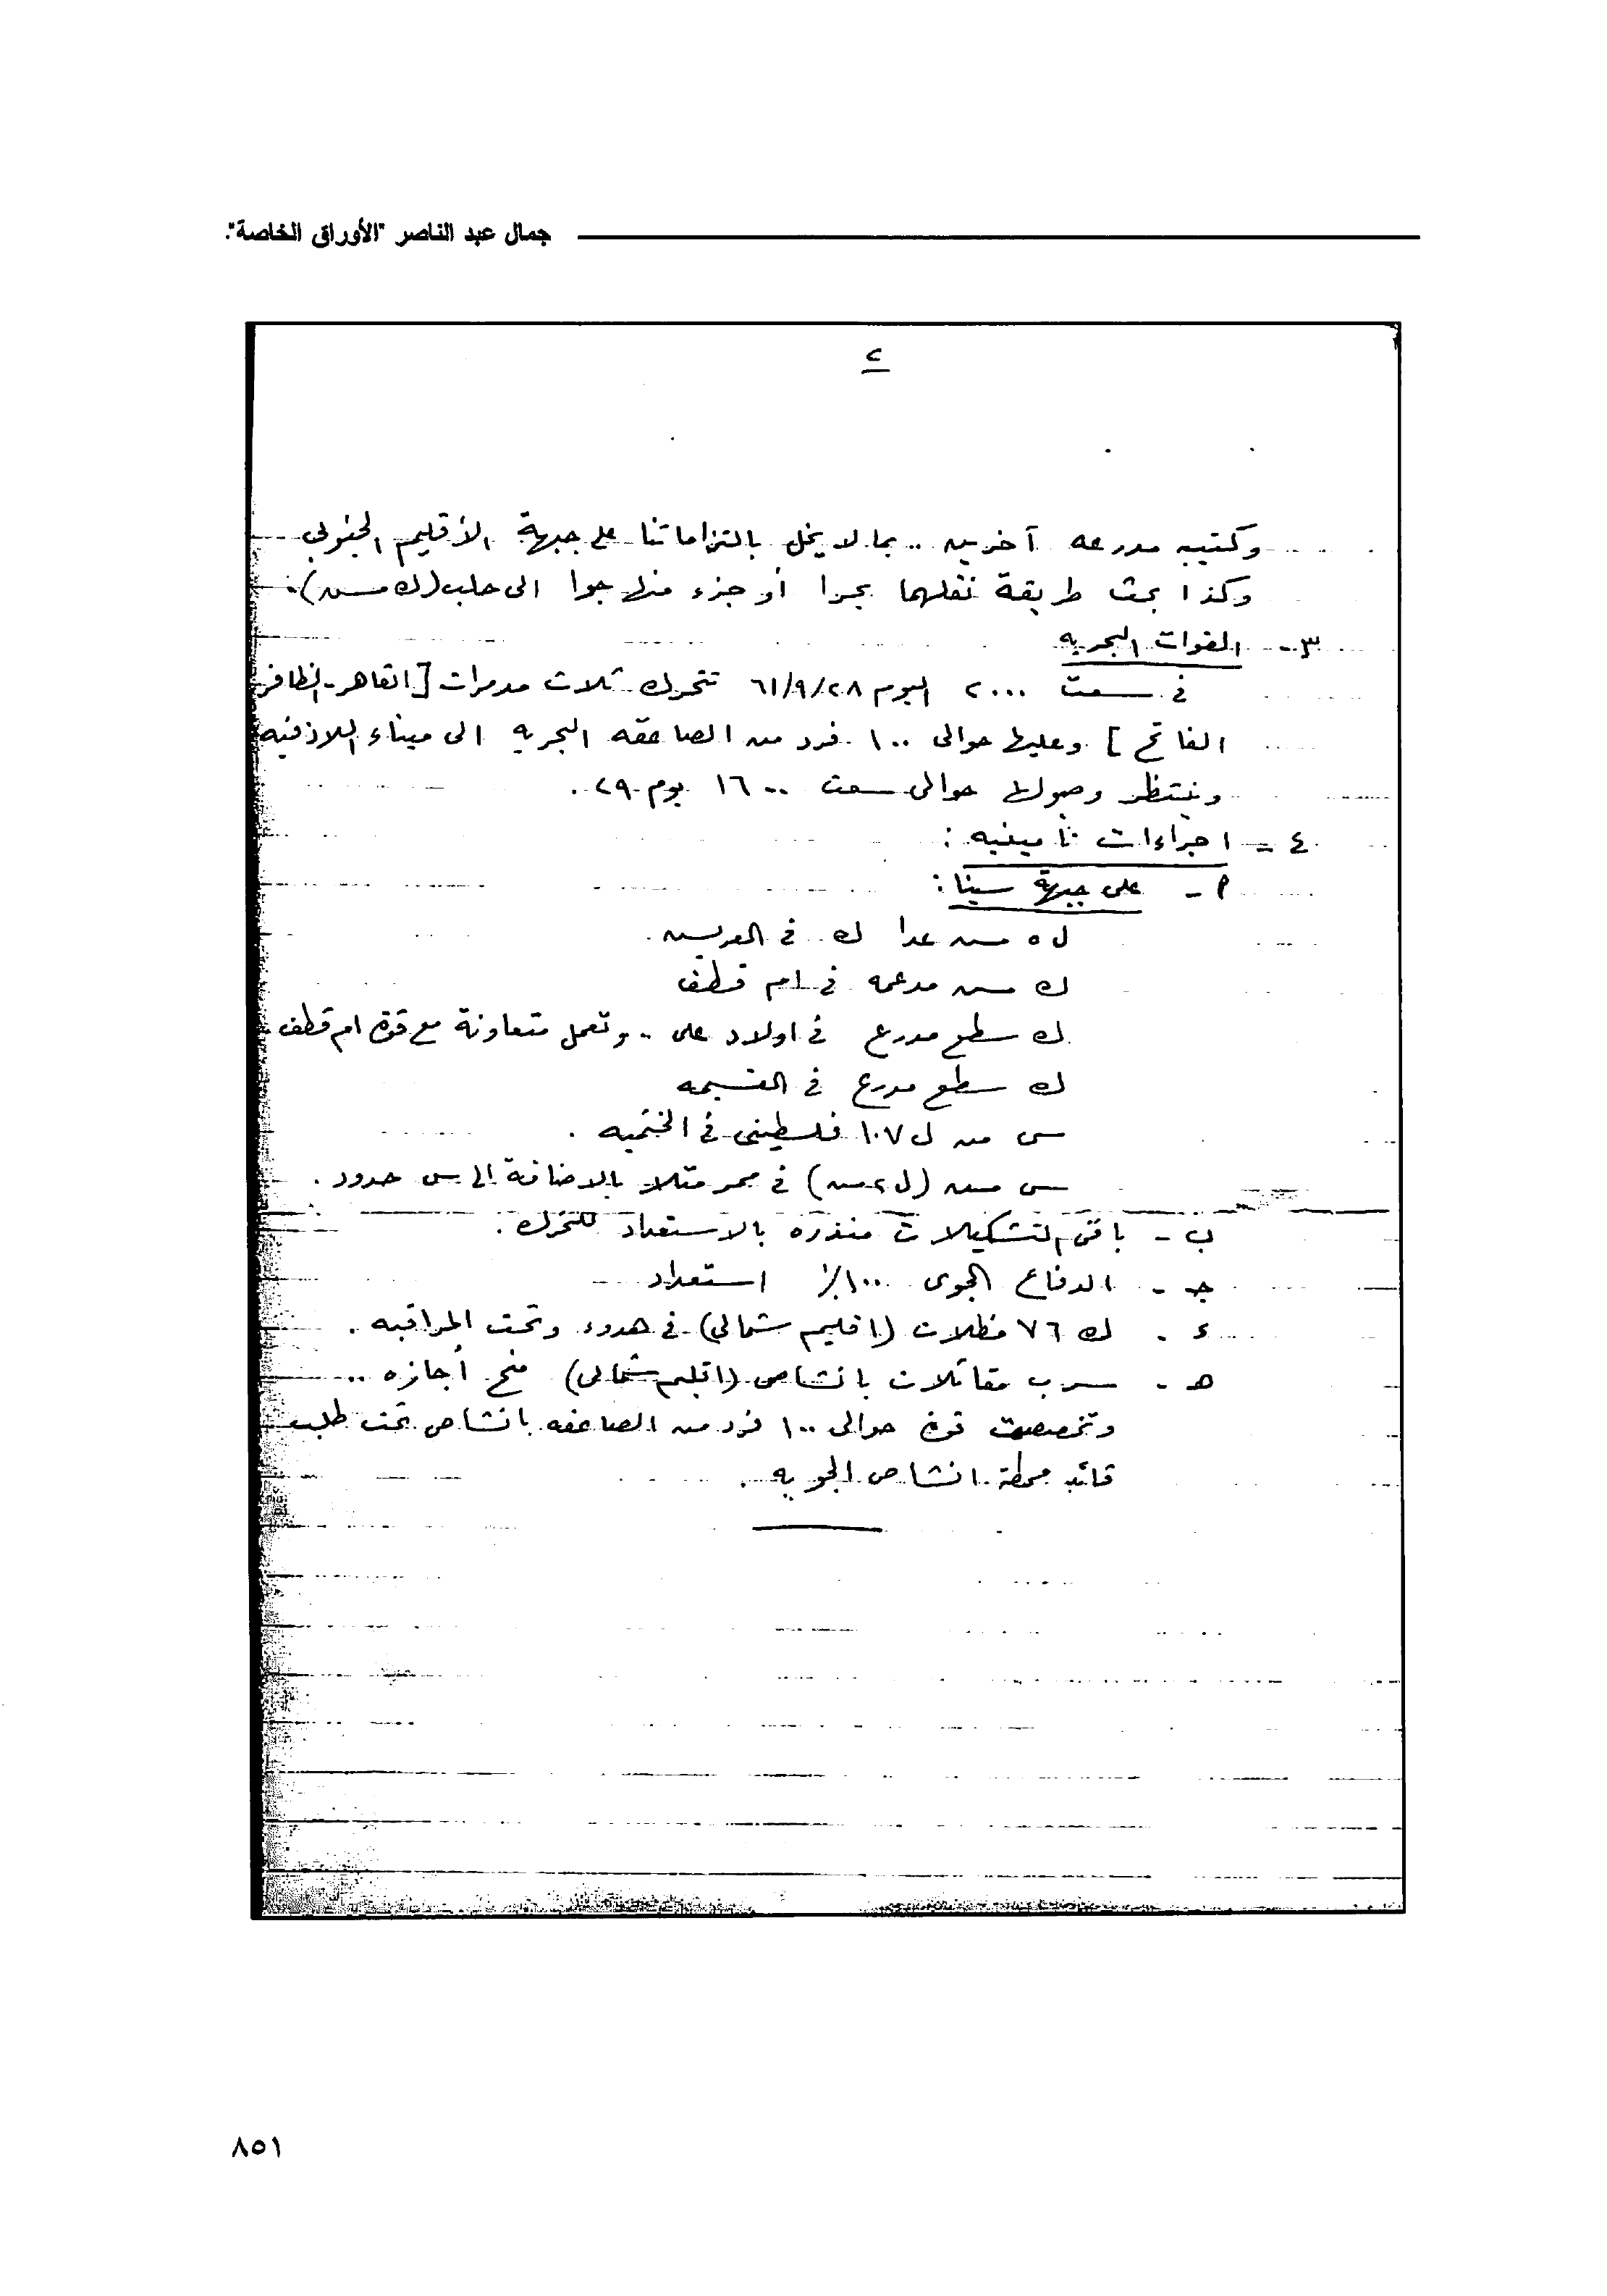 جمال عبد الناصر "الأوراق الخاصة".
٢
وكتيبه مدرعه آخرين .. بما لا يخل بالتزاماتنا على جبهة الأقليم الجنوبى
وكذا بحث طريقة نقلهما بحرا أو جزء منها جوا الى حلب (ك مـ).
٣- القوات البحريه
فى سعت ٢٠٠٠ اليوم ٦١/٩/٢٨ تتحرك ثلاث مدمرات [القاهر - الظافر
الفاتح] وعليها حوالى ١٠٠ فرد من الصاعقه البحريه الى ميناء اللاذقيه
وينتظر وصولها حوالى سعت ١٦٠٠ يوم ٢٩ .
٤ = اجراءات تأمينيه :
أ - على جبهة سينا :
ل ٥ مش عدا ك فى العريش .
ك مش مدعمه فى ام قطف
ك سطع مدرع فى اولاد على .. وتعمل متعاونة مع قوة ام قطف .
ك سطع مدرع فى القسيمه
س من ل ١٠٧ فلسطينى فى الختميه .
س مش (ل ٢ مش) فى ممر متلا بالاضافة الى س حدود .
ب - باقى التشكيلات منذره بالاستعداد للتحرك .
جـ - الدفاع الجوى ١٠٠٪ استعداد
ء - ك ٧٦ مظلات (اقليم شمالى) فى هدوء وتحت المراقبه .
هـ - سرب مقاتلات بانشاص (اقليم شمالى) منح أجازه ..
وتخصصت قوة حوالى ١٠٠ فرد من الصاعقه بانشاص تحت طلب
قائد محطة انشاص الجويه .
٨٥١